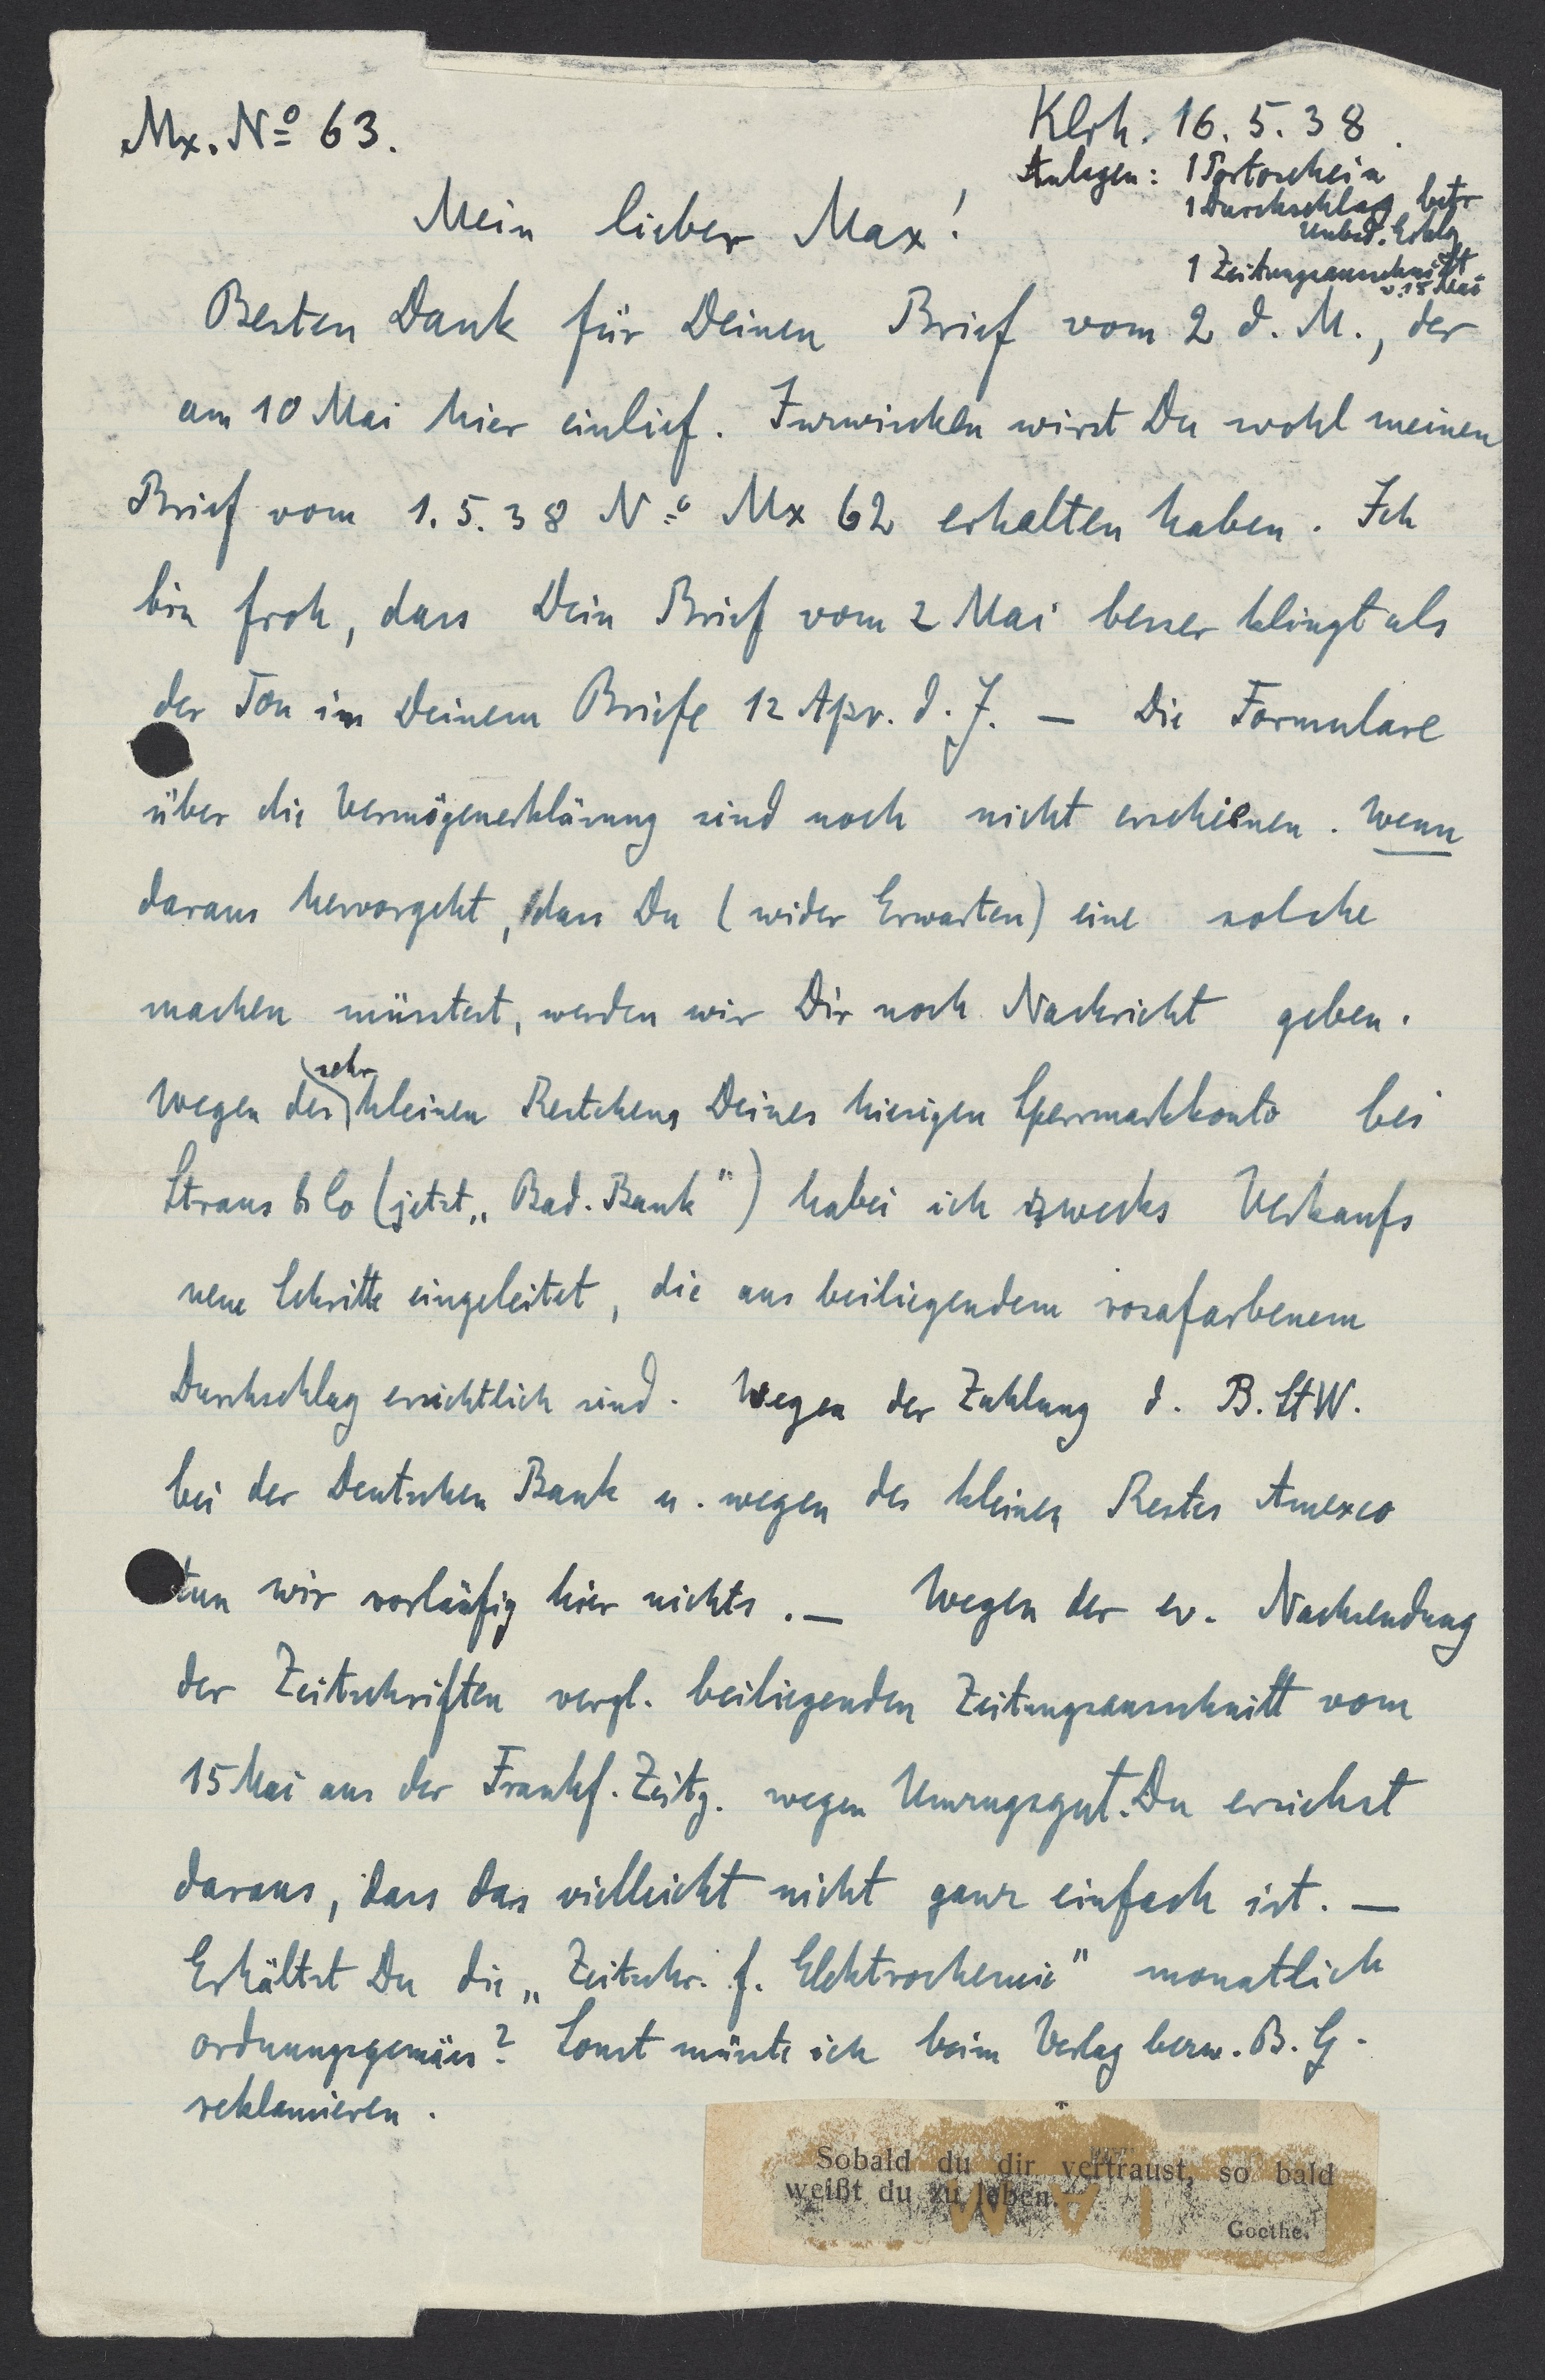 Mx. Nº 63.
Klrh. 16. 5. 38.
Anlagen: 1 Portoschein
1 Durchschlag betr
Unbed. Erklg
1 Zeitungsausschnitt
v. 15 Mai
Mein lieber Max!
Besten Dank für Deinen Brief vom 2 d. M., der
am 10 Mai hier einlief. Inzwischen wirst Du wohl meinen
Brief vom 1. 5. 38 Nº Mx 62 erhalten haben. Ich
bin froh, dass Dein Brief vom 2 Mai besser klingt als
der Ton in Deinem Briefe 12 Apr. d. J. — Die Formulare
über die Vermögenerklärung sind noch nicht erschienen. Wenn
daraus hervorgeht, dass Du (wider Erwarten) eine solche
machen müsstest, werden wir Dir noch Nachricht geben.
Wegen des sehr kleinen Restchens Deines hiesigen Sperrmarkkonto bei
Straus & Co (jetzt „Bad. Bank") habe ich zwecks Verkaufs
neue Schritte eingeleitet, die aus beiliegendem rosafarbenem
Durchschlag ersichtlich sind. Wegen der Zahlung d. B. StW.
bei der Deutschen Bank u. wegen des kleinen Restes Amexco
tun wir vorläufig hier nichts. — Wegen der ev. Nachsendung
der Zeitschriften vergl. beiliegenden Zeitungsausschnitt vom
15 Mai aus der Frankf. Zeitg. wegen Umzugsgut. Du ersiehst
daraus, dass das vielleicht nicht ganz einfach ist. —
Erhältst Du die „Zeitschr. f. Elektrochemie" monatlich
ordnungsgemäss? Sonst müsste ich beim Verlag bezw. B. G.
reklamieren.
Sobald du dir vertraust, so bald
weißt du zu leben.
Goethe.